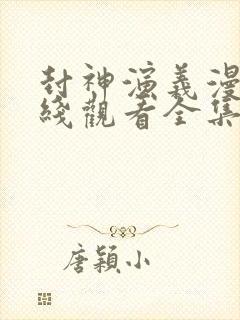 封神演義漫
綫觀看全集
唐穎小